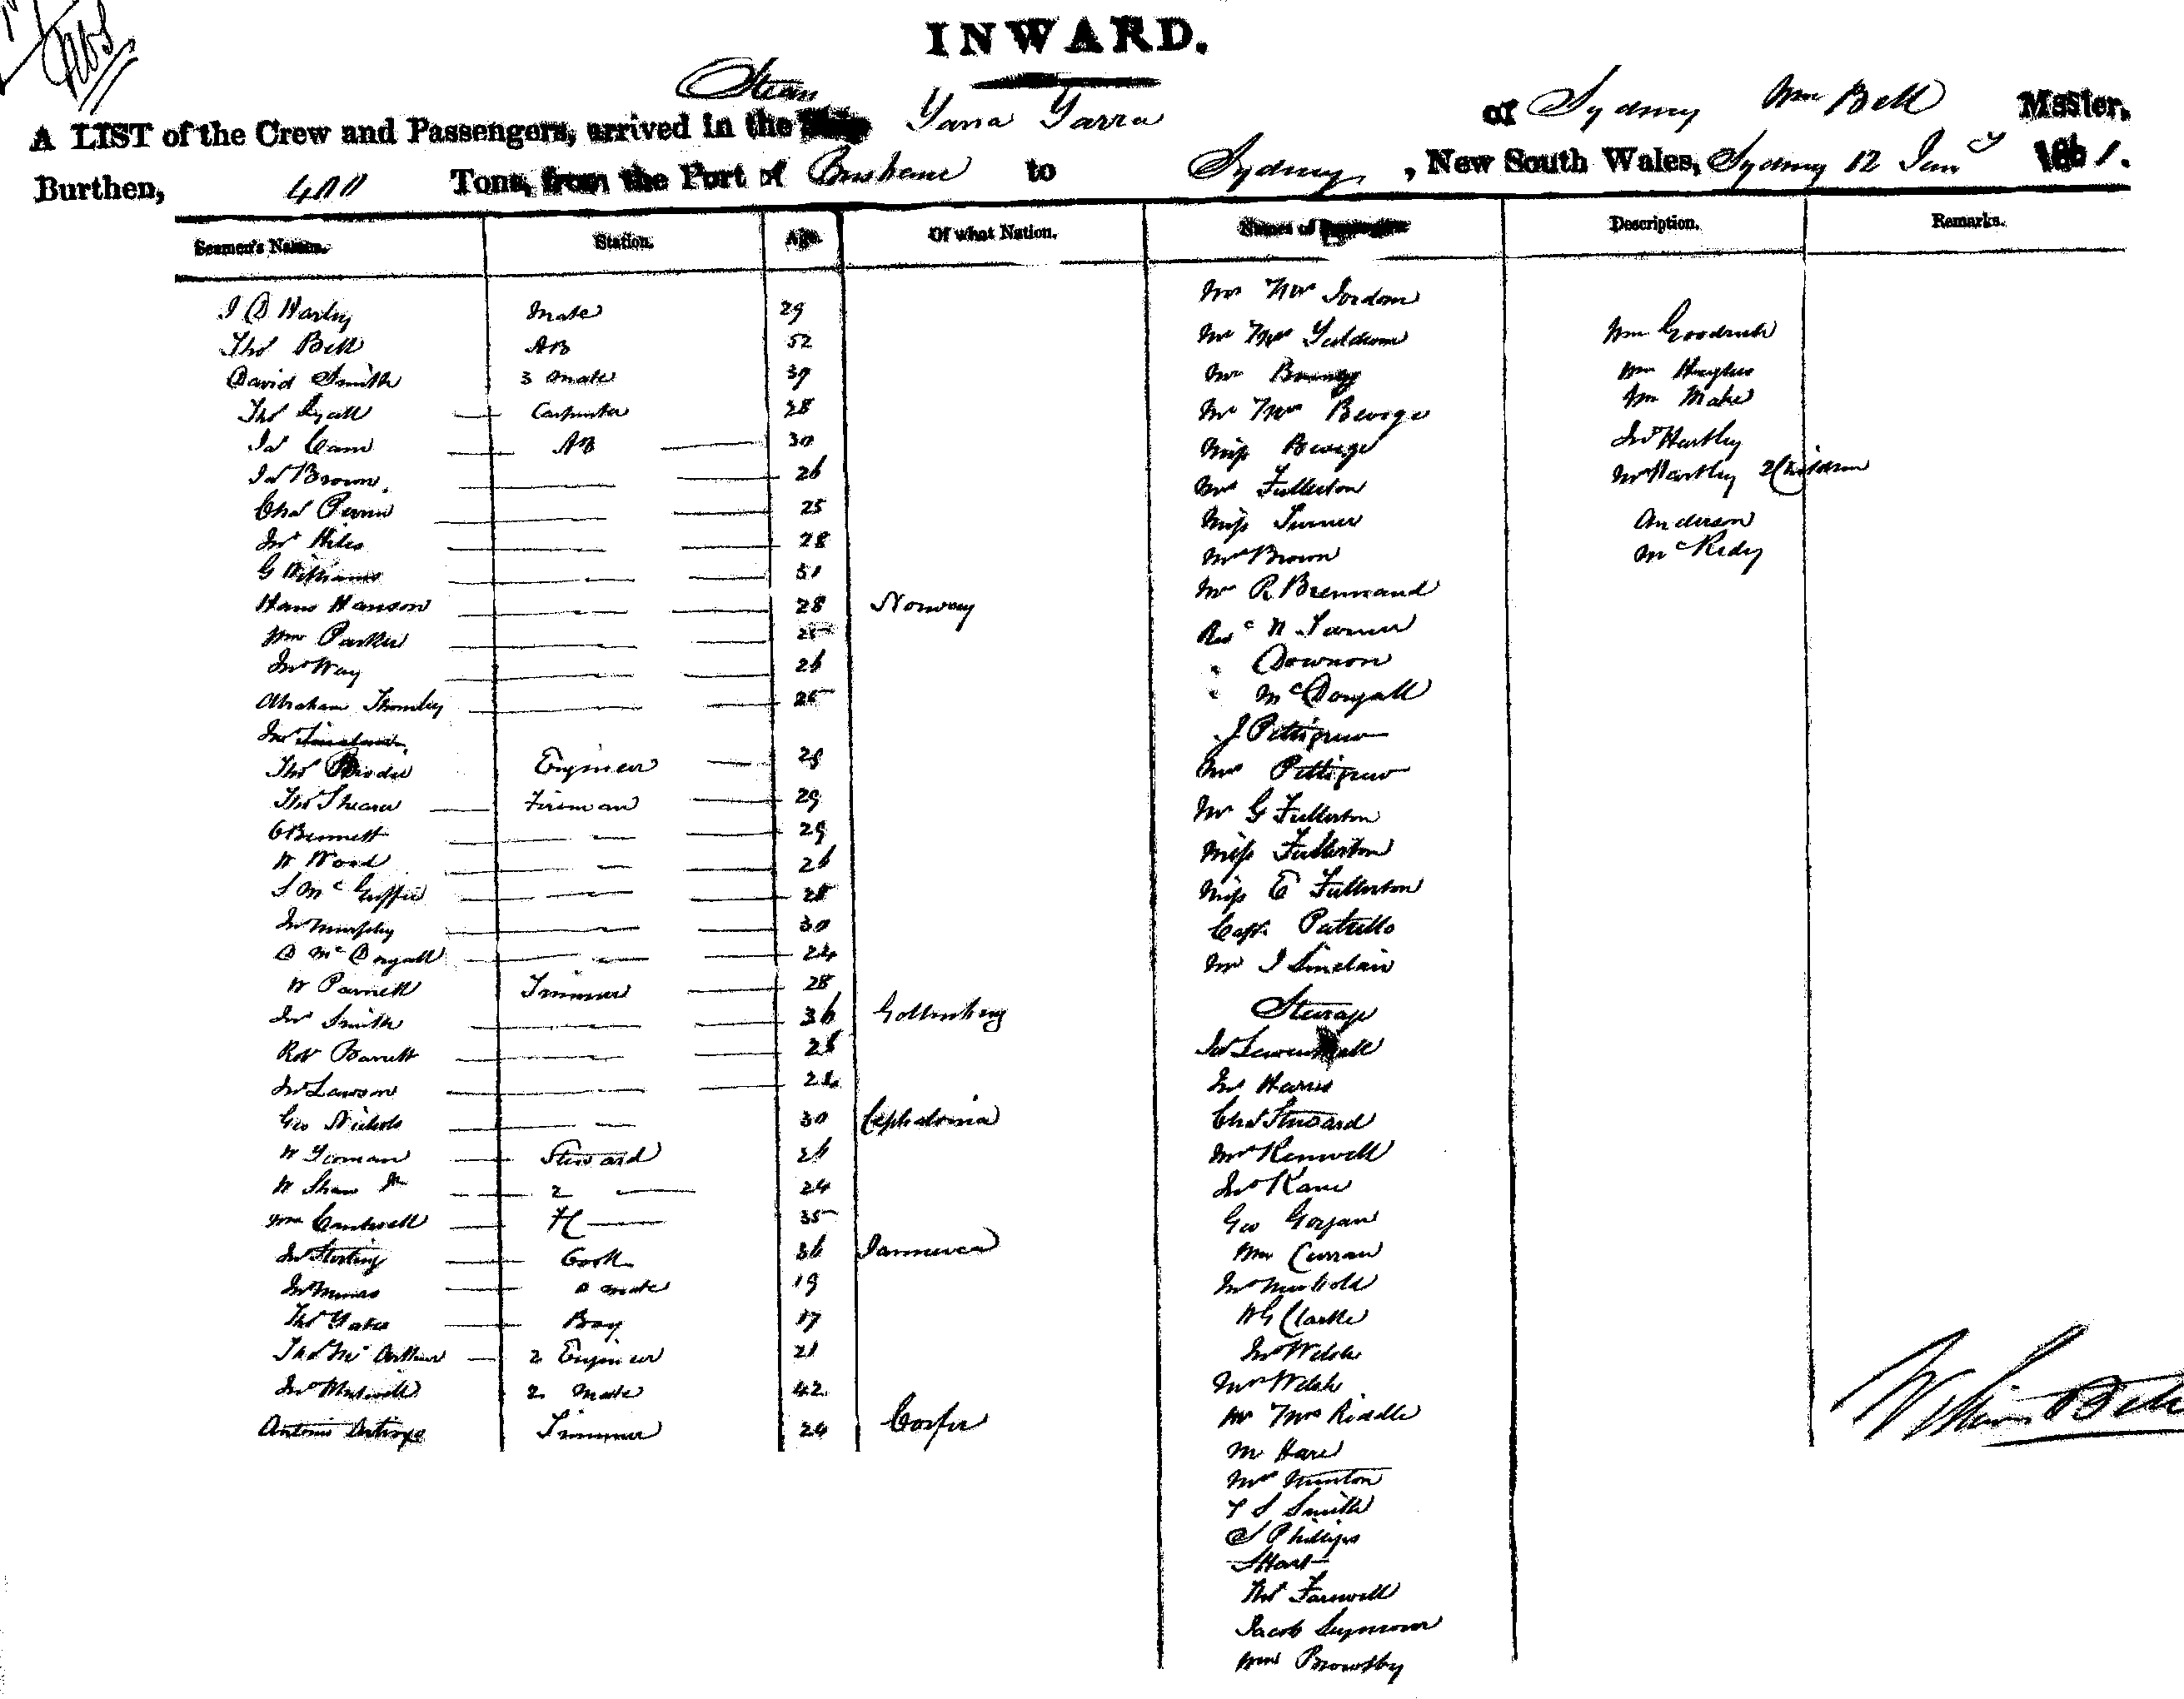 INWARD.
Steam
A LIST of the Crew and Passengers, arrived in the Ship Yarra Yarra of Sydney Wm Bell Master,
Burthen, 400 Tons, from the Port of Brisbane to Sydney, New South Wales, Sydney 12 Jany 1861.
Seamen's Names. Station. Age. Of what Nation. Names of Passengers Description. Remarks.
J D Harley Mate 29
Thos Bell AB 52
David Smith 3 Mate 39
Thos Lyall Carpenter 28
Jas Cam AB 30
Jas Brown 26
Chas Perrin 25
Jno Hiles 28
G Williams 51
Hans Hanson 28 Norway
Wm Parker 25
Jno Way 26
Abraham Thornley 25
Jno
Thos Brodie Engineer 28
Thos Shearer Fireman 29
C Bennett 29
W Wood 26
S McGuffie 28
Jno Murphy 30
D McDogall 24
W Parnell Trimmer 28
Jno Smith 36 Gottenberg
Robt Barrett 28
Jno Lawson 24
Geo Nichols 30 Cephalonia
W Yeoman Steward 26
W Shaw Jr 2 24
Wm Cantwell 35
Jno Sterling Cook 36 Jamaica
Jno Minias D mate 19
Thos Yates Boy 17
Thos McArthur 2 Engineer 21
Jno 2 Mate 42
Antonio Trimmer 24 Corfu
Mr Mrs Jordan
Mr Mrs
Mr
Mr Mrs Beorge
Miss Beorge
Mrs Fullerton
Miss Turner
Mrs Brown
Mr R Brennand
Revd N Turner
" Dowson
" McDougall
J Pettigrew
Mrs Pettigrew
Mr G Fullerton
Miss Fullerton
Miss E Fullerton
Capt Patullo
Mr J Sinclair
Steerage
Jas
Jno Harris
Chas Steward
Mrs Kenwell
Jno Kane
Geo Gorgan
Wm Curran
Jno Newbold
W G Clarke
Jno Welsh
Mrs Welsh
Mr Mrs Riddle
Mr Hare
Mrs Newton
T S Smith
S Phillips
S Hart
Thos Farewell
Jacob Seymour
Wm Brownsby
Wm Goodrich
Wm Hughes
Wm Make
Jno Hartley
Mrs Hartley 2 Children
Anderson
McRedy
William Bell